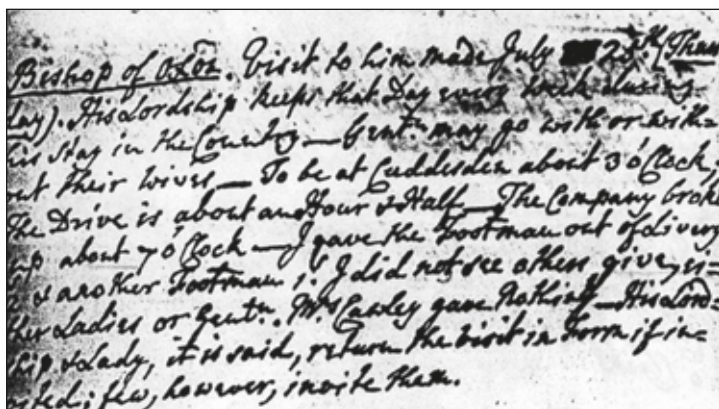 Bishop of Oxon. Visit to him made July 25th (Thurs
day). His Lordship keeps that Day every week during
his stay in the Country — Gentn. may go with or with=
out their wives — To be at Cuddesden about 3 o'Clock,
The Drive is about an Hour & Half — The Company broke
up about 7 o'Clock — I gave the Footman out of Livery
& another Footman 1s. I did not see others give, ei=
ther Ladies or Gentn. Mrs Cawley gave Nothing — His Lord=
ship & Lady, it is said, return the Visit in Form if in=
vited; few, however, invite them.